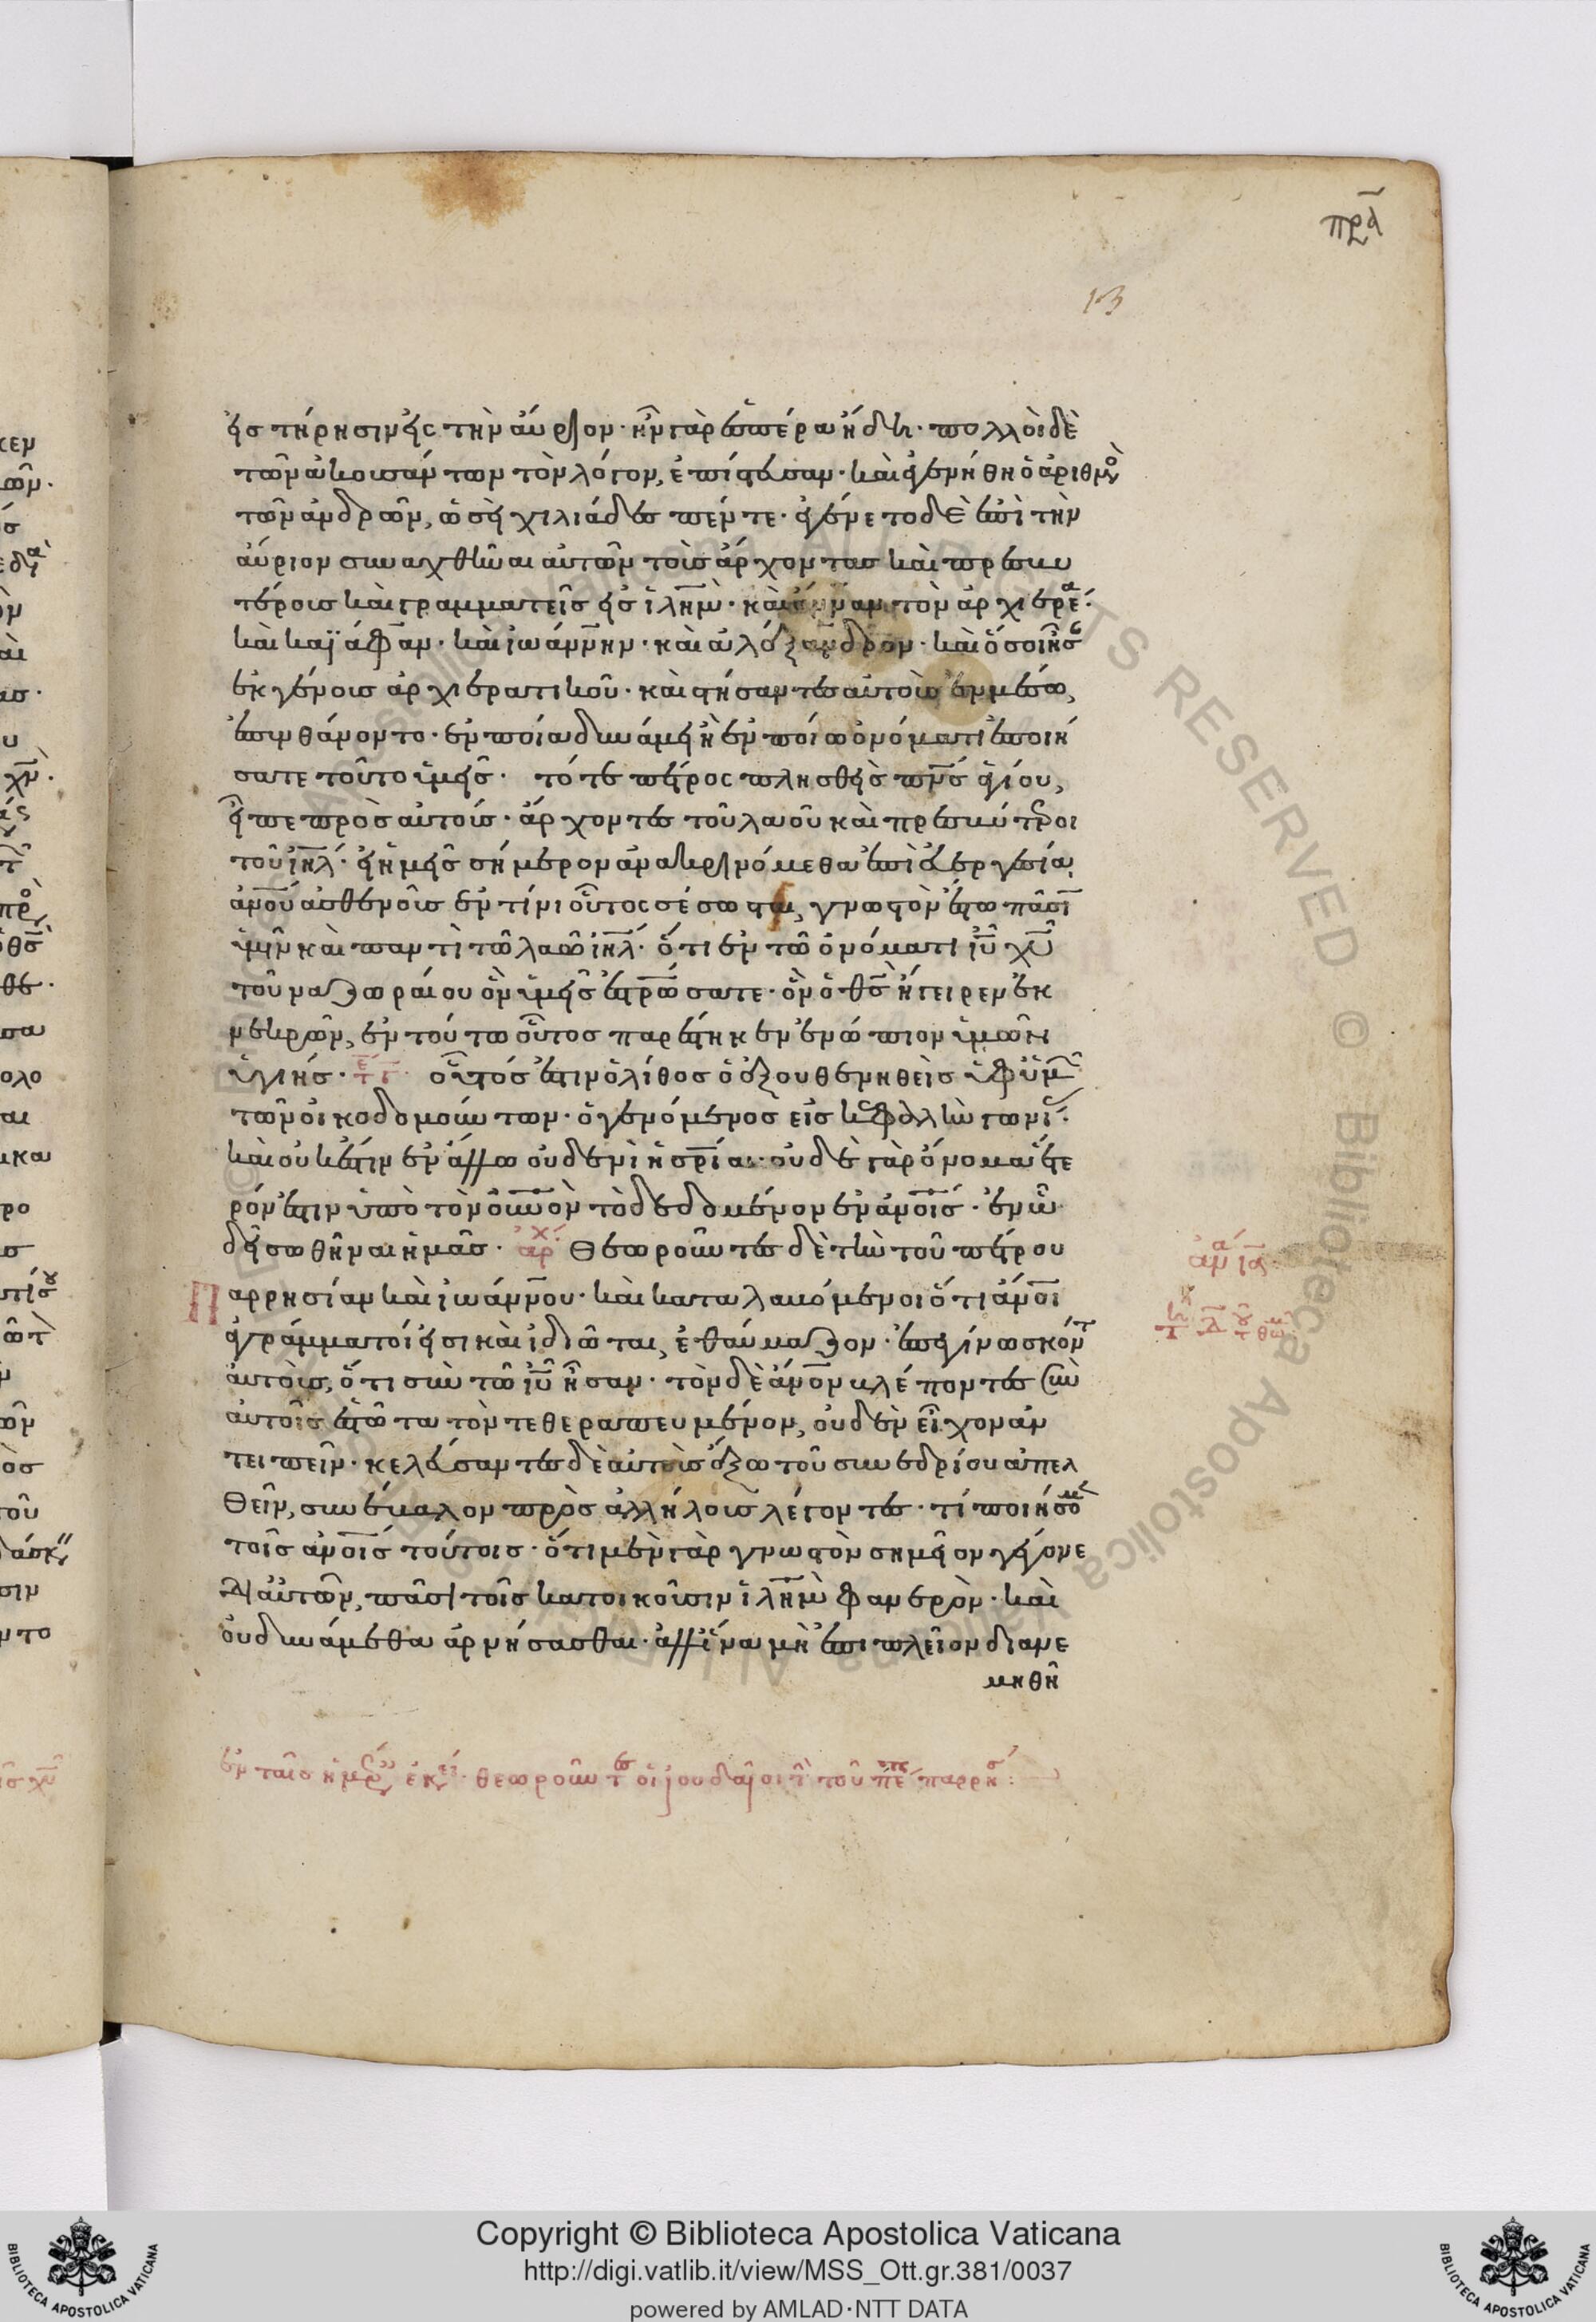 πρα
13
εἰς τήρησιν εἰς τὴν αὔριον· ἦν γὰρ ἑσπέρα ἤδη· πολλοὶ δὲ
τῶν ἀκουσάντων τὸν λόγον, ἐπίστευσαν· καὶ ἐγενήθη ὁ ἀριθμὸ
τῶν ἀνδρῶν, ὡσεὶ χιλιάδες πέντε· ἐγένετο δὲ ἐπὶ τὴν
αὔριον συναχθῆναι αὐτῶν τοὺς ἄρχοντας καὶ πρεσβυ
τέρους καὶ γραμματεῖς εἰς ἰλημ· καὶ ἄνναν τὸν ἀρχιερέα·
καὶ καϊάφαν· καὶ ἰωάννην· καὶ ἀλέξανδρον· καὶ ὅσοι ἦσ
ἐκ γένους ἀρχιερατικοῦ· καὶ στήσαντες αὐτοὺς ἐν μέσω,
ἐπυνθάνοντο· ἐν ποία δυνάμει ἢ ἐν ποίω ὀνόματι ἐποιή
σατε τοῦτο ὑμεῖς· τότε πέτρος πλησθεὶς πνς ἁγίου,
εἶπε πρὸς αὐτούς· ἄρχοντες τοῦ λαοῦ καὶ πρεσβύτεροι
τοῦ ιηλ· εἰ ἡμεῖς σήμερον ἀνακρινόμεθα ἐπὶ εὐεργεσία
ανου ἀσθενοῦς ἐν τίνι οὗτος σέσωσται, γνωστὸν ἔστω πᾶσι
ὑμῖν καὶ παντὶ τῶ λαῶ ιηλ· ὅτι ἐν τῶ ὀνόματι ιυ χυ
τοῦ ναζωραίου ὃν ὑμεῖς ἐστρώσατε· ὃν ὁ θς ἤγειρεν ἐκ
νεκρῶν, ἐν τούτω οὗτος παρέστηκεν ἐνώπιον ὑμῶν
ὑγιής· οὗτός ἐστιν ὁ λίθος ὁ ἐξουθενηθεὶς ὑφ' ὑμ
τῶν οἰκοδομούντων· ὁ γενόμενος εἰς κεφαλὴν γωνί·
καὶ οὐκ ἔστιν ἐν ἄλλω οὐδενὶ ἡ σρία· οὐδὲ γὰρ ὄνομα ἕτε
ρόν ἐστιν ὑπὸ τὸν ουνον τὸ δεδομένον ἐν ανοις· ἐν ὧ
δεῖ σωθῆναι ἡμᾶς· ἀρχ Θεωροῦντες δὲ τὴν τοῦ πέτρου
Παρρησίαν καὶ ἰωάννου· καὶ καταλαβόμενοι ὅτι ανοι
ἀγράμματοί εἰσι καὶ ἰδιῶται, ἐθαύμαζον· ἐπεγίνωσκόν τ
αὐτοὺς, ὅτι σὺν τῶ ιυ ἦσαν· τὸν δὲ ανον βλέποντες σὺ
αὐτοῖς ἑστῶτα τὸν τεθεραπευμένον, οὐδὲν εἶχον ἀν
τειπεῖν· κελεύσαντες δὲ αὐτοὺς ἔξω τοῦ συνεδρίου ἀπελ
θεῖν, συνέβαλον πρὸς ἀλλήλους λέγοντες· τί ποιήσομ
τοῖς ανοις τούτοις· ὅτι μὲν γὰρ γνωστὸν σημεῖον γέγονε
δι' αὐτῶν, πᾶσι τοῖς κατοικοῦσιν ιλημ φανερὸν· καὶ
οὐ δυνάμεθα ἀρνήσασθαι· ἀλλ' ἵνα μὴ ἐπιπλεῖον διανε
μηθῆ
ἐν ταῖς ἡμέρ ἐκεί· θεωροῦντες οἱ ἰουδαῖοι τὴ τοῦ πέ παρρησ